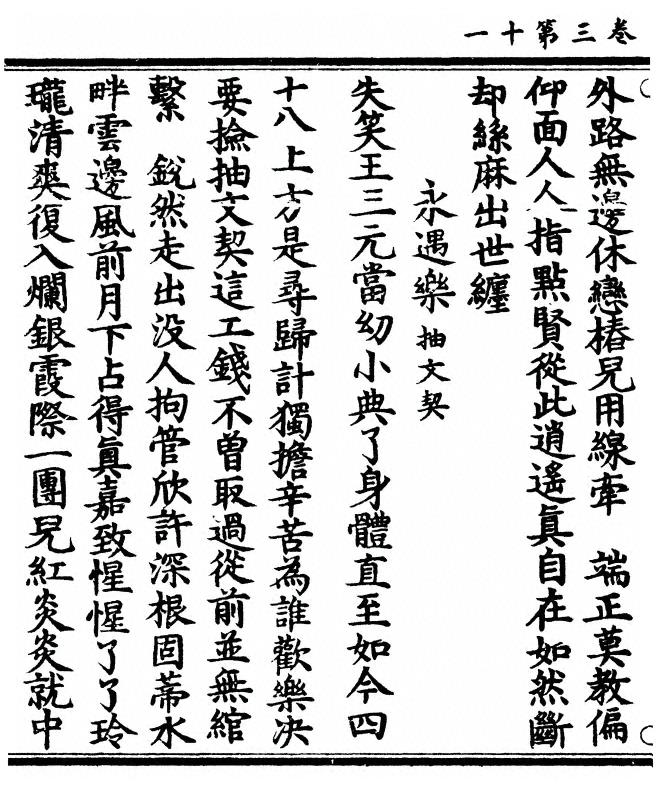 卷三第十一
外路無邊休戀樁兒用線牽　端正莫教偏
仰面人人指點賢從此逍遙眞自在如然斷
却絲麻出世纏
永遇樂 抽文契
失笑王三元當幼小典了身體直至如今四
十八上方是尋歸計獨擔辛苦為誰歡樂决
要撿抽文契這工錢不曾取過從前並無綰
繫　銳然走出没人拘管欣許深根固蒂水
畔雲邊風前月下占得眞嘉致惺惺了了玲
瓏清爽復入爛銀霞際一團兒紅炎炎就中